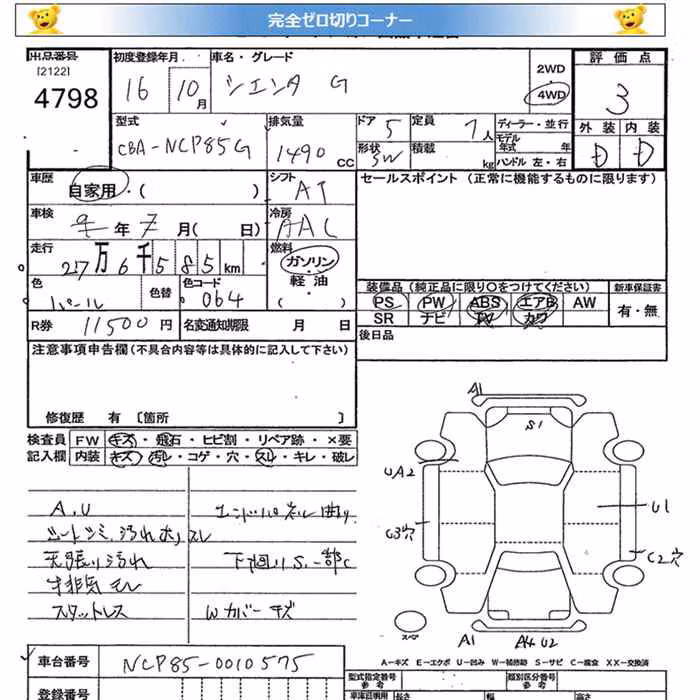 完全ゼロ切りコーナー
出品番号
[2122]
4798
初度登録年月
16 10月
車名・グレード
シエンタ G
2WD
4WD
評価点
3
外装 内装
D D
型式
CBA-NCP85G
排気量
1490 CC
ドア 5
定員 7人
形状 SW
積載 kg
ディーラー・並行
モデル年式 年
ハンドル 左・右
車歴
自家用・( )
シフト
AT
セールスポイント (正常に機能するものに限ります)
車検
年 7月( 日)
冷房
AAC
走行
27万6千585km
燃料
ガソリン・
軽油・
( )
色
パール
色替
色コード
064
装備品(純正品に限り○をつけてください)
PS PW ABS エアB AW
SR ナビ TV カワ
新車保証書
有・無
R券 11500円
名変通知期限 月 日
後日品
注意事項申告欄(不具合内容等は具体的に記入して下さい)
修復歴 有 [箇所 ]
検査員 FW キズ・飛石・ヒビ割・リペア跡・×要
記入欄 内装 キズ・汚れ・コゲ・穴・スレ・キレ・破レ
A.U
シートシミ汚れ
天張り汚れ
排気モレ
スタットレス
エンドパネル曲り
下廻りS.一部C
Wカバーキズ
A1
S1
UA2
C3穴
U1
C2穴
スペア
A1
A4 U2
A-キズ E-エクボ U-凹み W-補修跡 S-サビ C-腐食 XX-交換済
車台番号 NCP85-0010575
登録番号
型式指定番号
参考
類別区分番号
参考
車庫証明用
長さ
幅
高さ